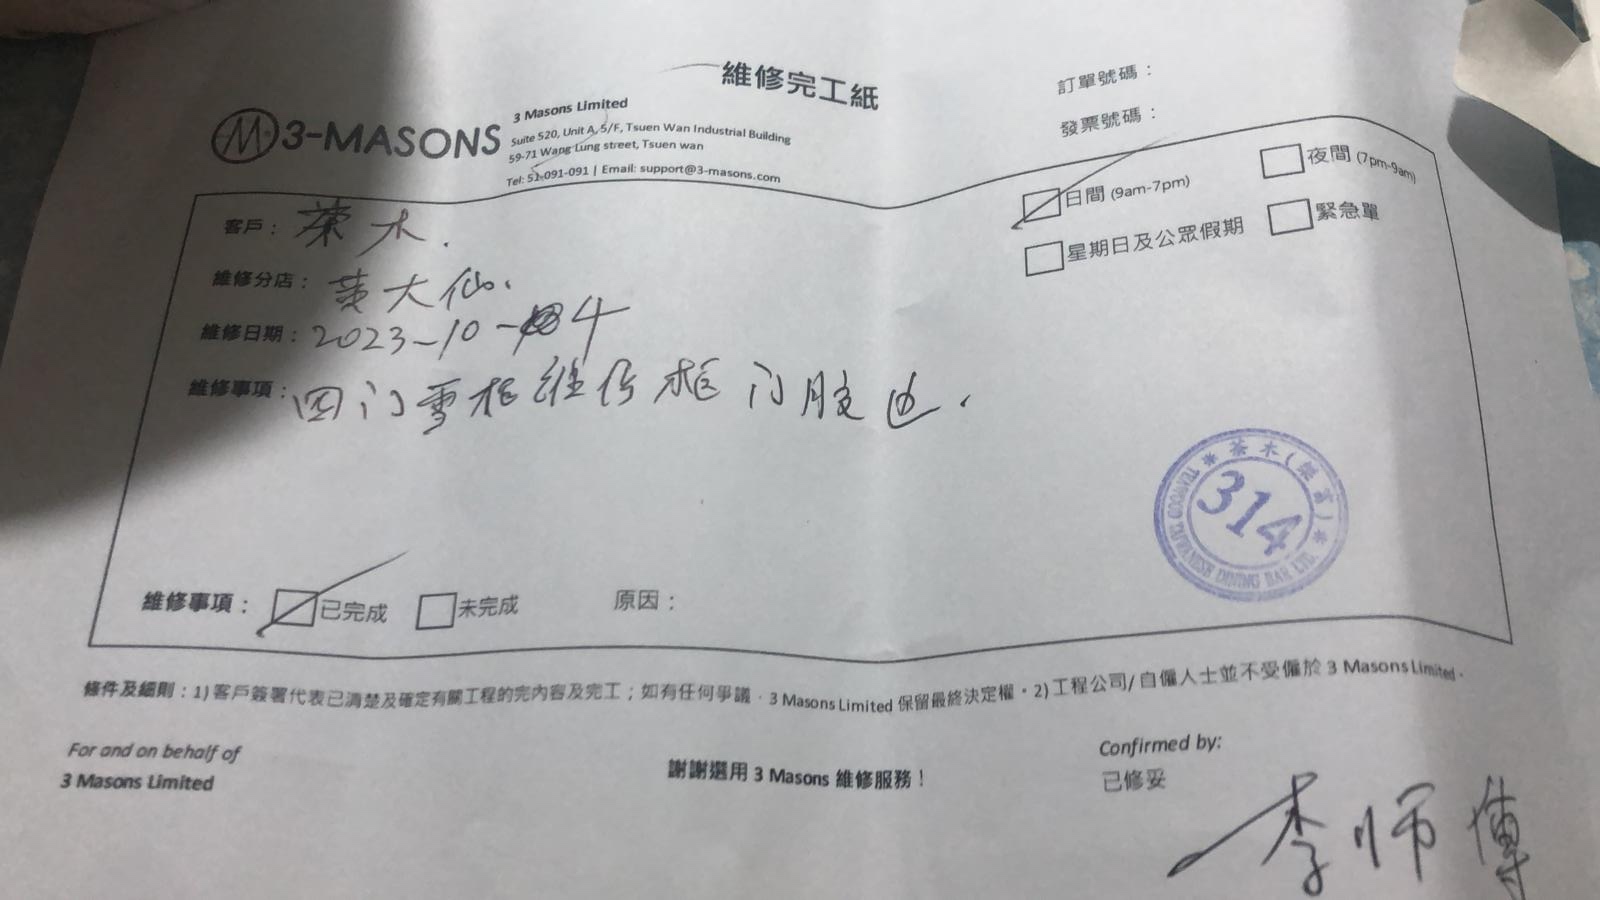 維修完工紙
訂單號碼：
發票號碼：
3-MASONS
3 Masons Limited
Suite 520, Unit A, 5/F, Tsuen Wan Industrial Building
59-71 Wang Lung street, Tsuen wan
Tel: 51-091-091 | Email: support@3-masons.com
日間 (9am-7pm)
夜間 (7pm-9am)
星期日及公眾假期
緊急單
客戶： 茶木.
維修分店： 黃大仙.
維修日期： 2023-10-4
維修事項： 四门雪柜維修柜门胶边.
茶木(榮富)
314
TEAWOOD TAIWANESE DINING BAR LTD.
維修事項： 已完成 未完成 原因：
條件及細則：1) 客戶簽署代表已清楚及確定有關工程的完內容及完工；如有任何爭議，3 Masons Limited 保留最終決定權。2) 工程公司/自僱人士並不受僱於 3 Masons Limited.
For and on behalf of
3 Masons Limited
謝謝選用 3 Masons 維修服務！
Confirmed by:
已修妥
李师傅